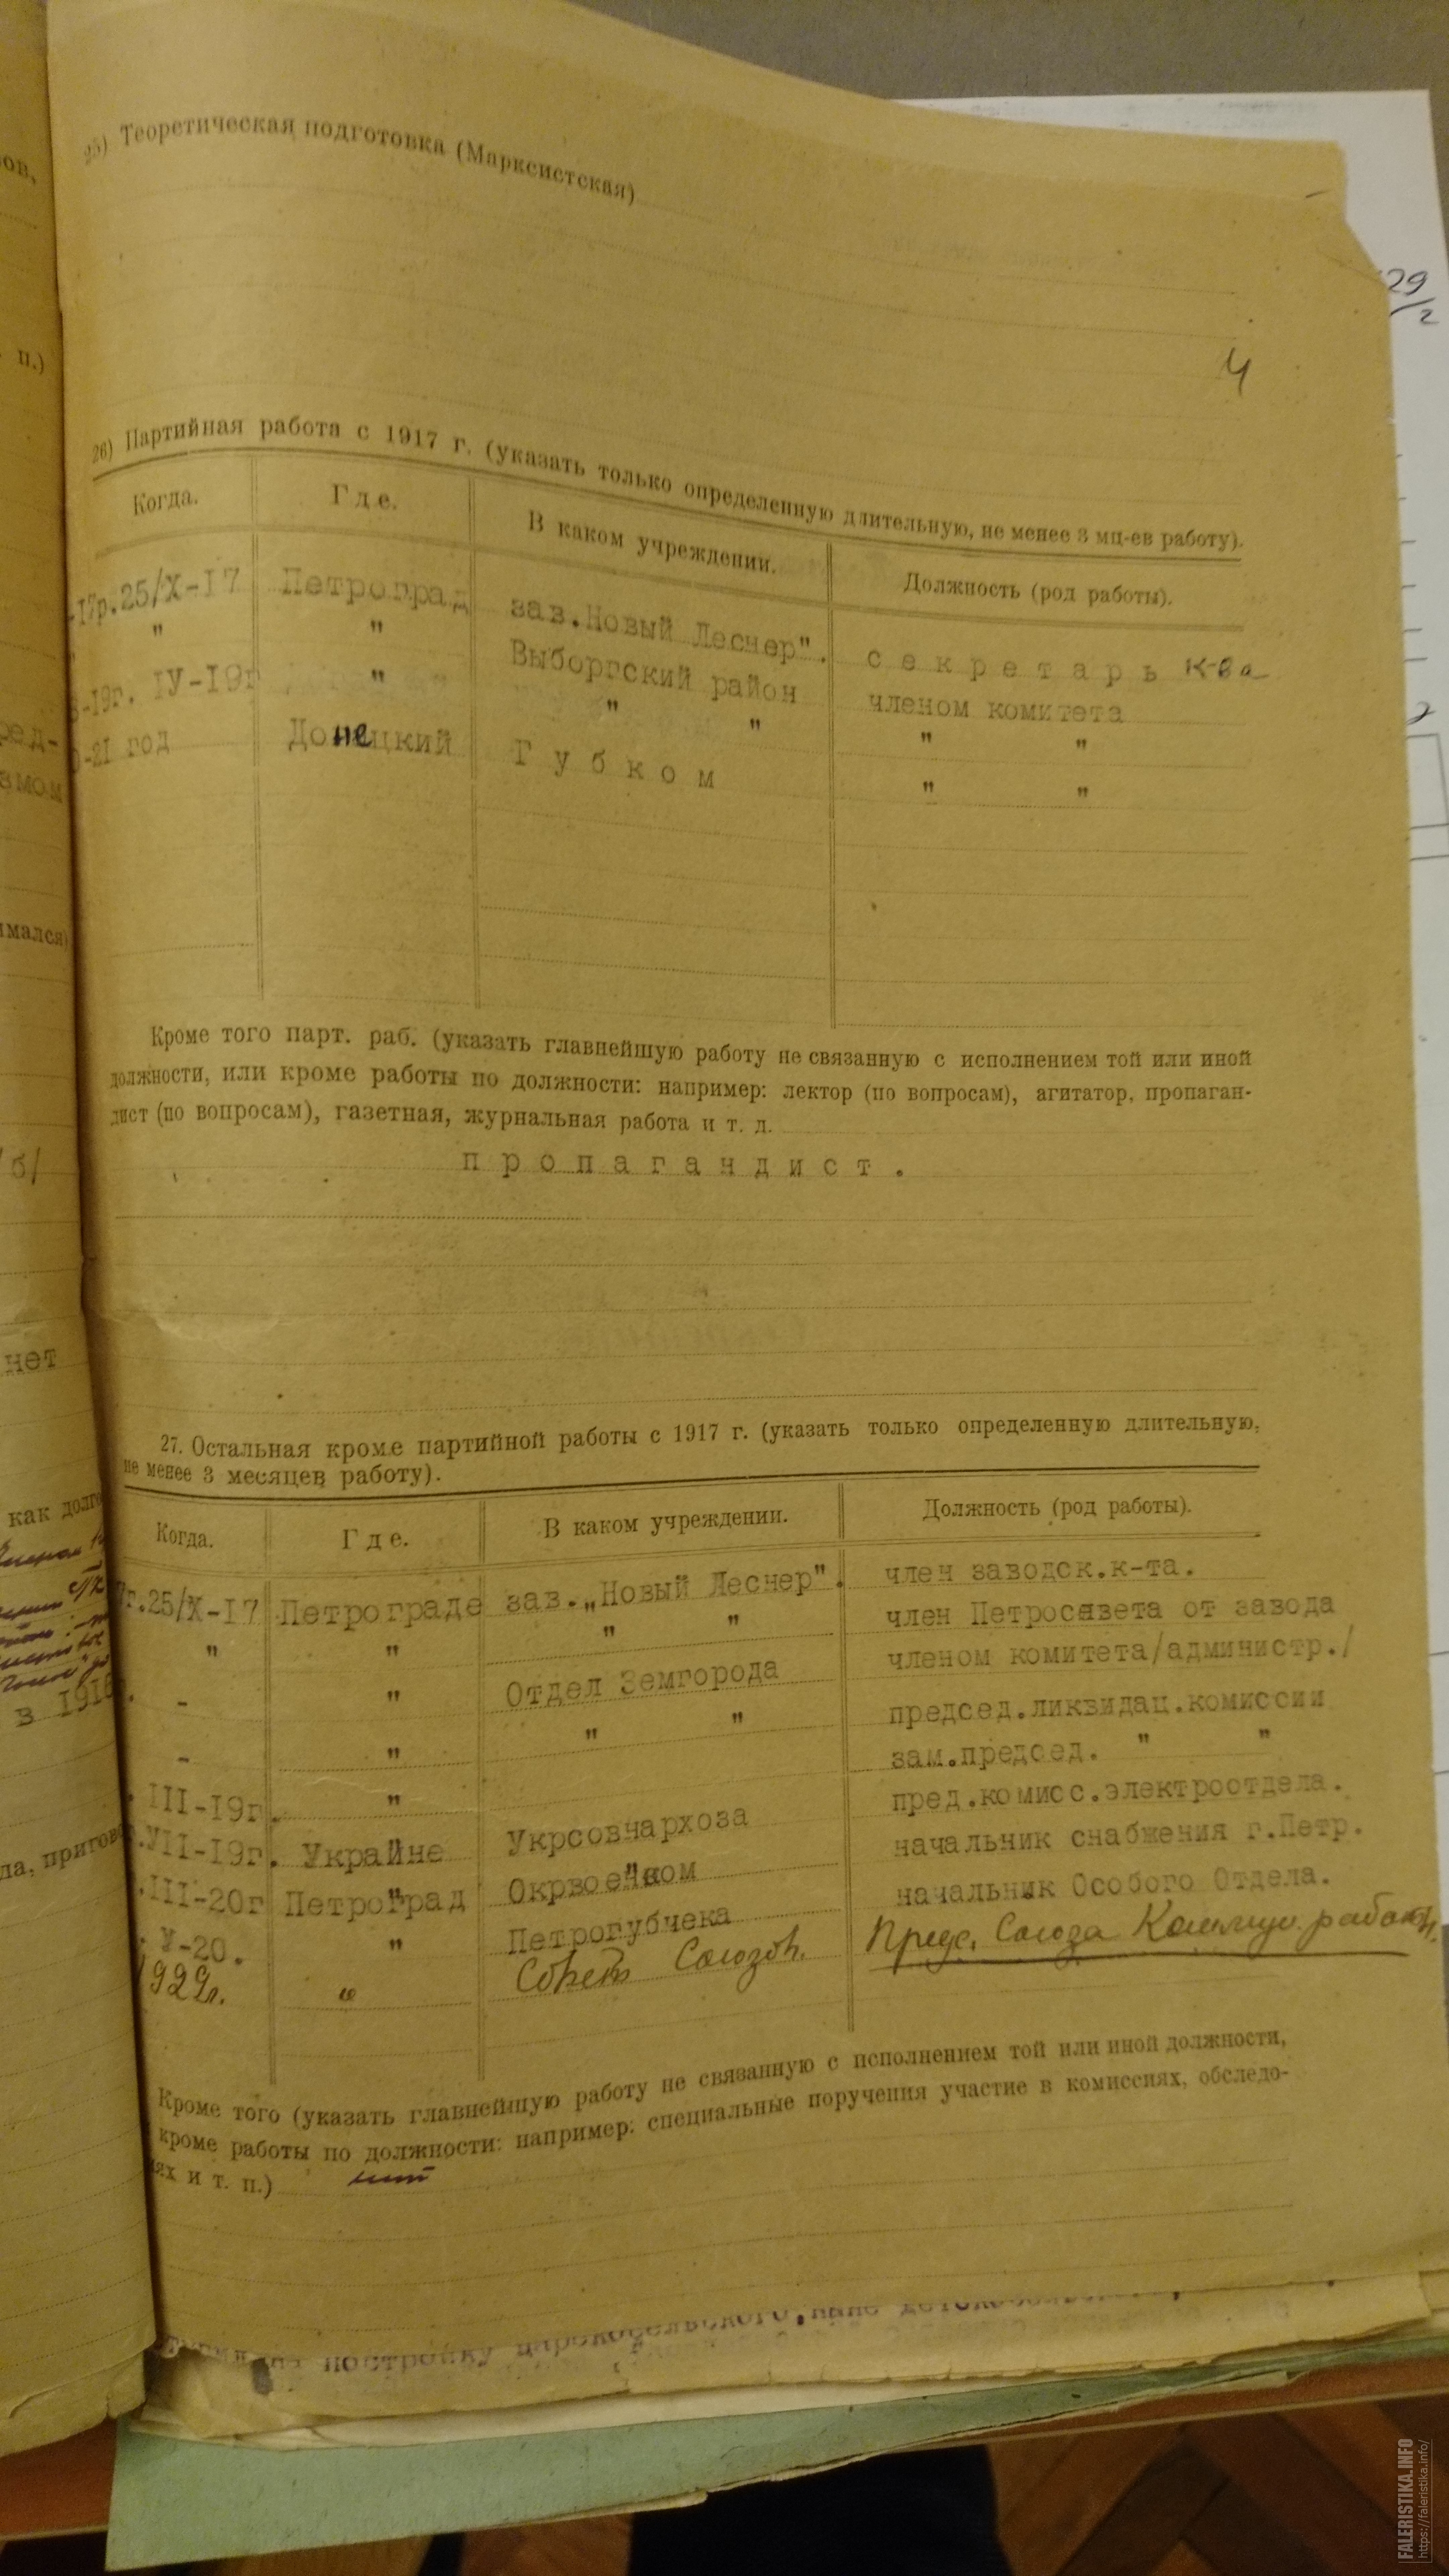 25) Теоретическая подготовка (Марксистская)
29/2
4
26) Партийная работа с 1917 г. (указать только определенную длительную, не менее 3 мц-ев работу).
Когда. Где. В каком учреждении. Должность (род работы).
-17г.25/X-17 Петроград зав.Новый Леснер". секретарь к-ва
" " Выборгский район членом комитета
-19г. IУ-19г " " " " "
-21 год Донецкий Губком " "
Кроме того парт. раб. (указать главнейшую работу не связанную с исполнением той или иной
должности, или кроме работы по должности: например: лектор (по вопросам), агитатор, пропаган-
дист (по вопросам), газетная, журнальная работа и т. д.
пропагандист.
27. Остальная кроме партийной работы с 1917 г. (указать только определенную длительную,
не менее 3 месяцев работу).
Когда. Где. В каком учреждении. Должность (род работы).
г.25/X-17 Петрограде зав.„Новый Леснер". член заводск.к-та.
" " " " член Петросовета от завода
- " Отдел Земгорода членом комитета/администр./
- " " " председ.ликвидац.комиссии
зам.председ. " "
III-19г. " пред.комисс.электроотдела.
УII-19г. Украине Укрсовнархоза начальник снабжения г.Петр.
III-20г Петроград Окрвоенком начальник Особого Отдела.
У-20. " Петрогубчека
1929г. " Совет Союзов. Пред. Союза Коммун. работн.
Кроме того (указать главнейшую работу не связанную с исполнением той или иной должности,
кроме работы по должности: например: специальные поручения участие в комиссиях, обследо-
ях и т. п.) нет
постройку царскосельского, ныне
ов,
п.)
ред-
змом
имался)
/б/
нет
как долго
в 1916
да, пригов
FALERISTIKA.INFO
https://faleristika.info/